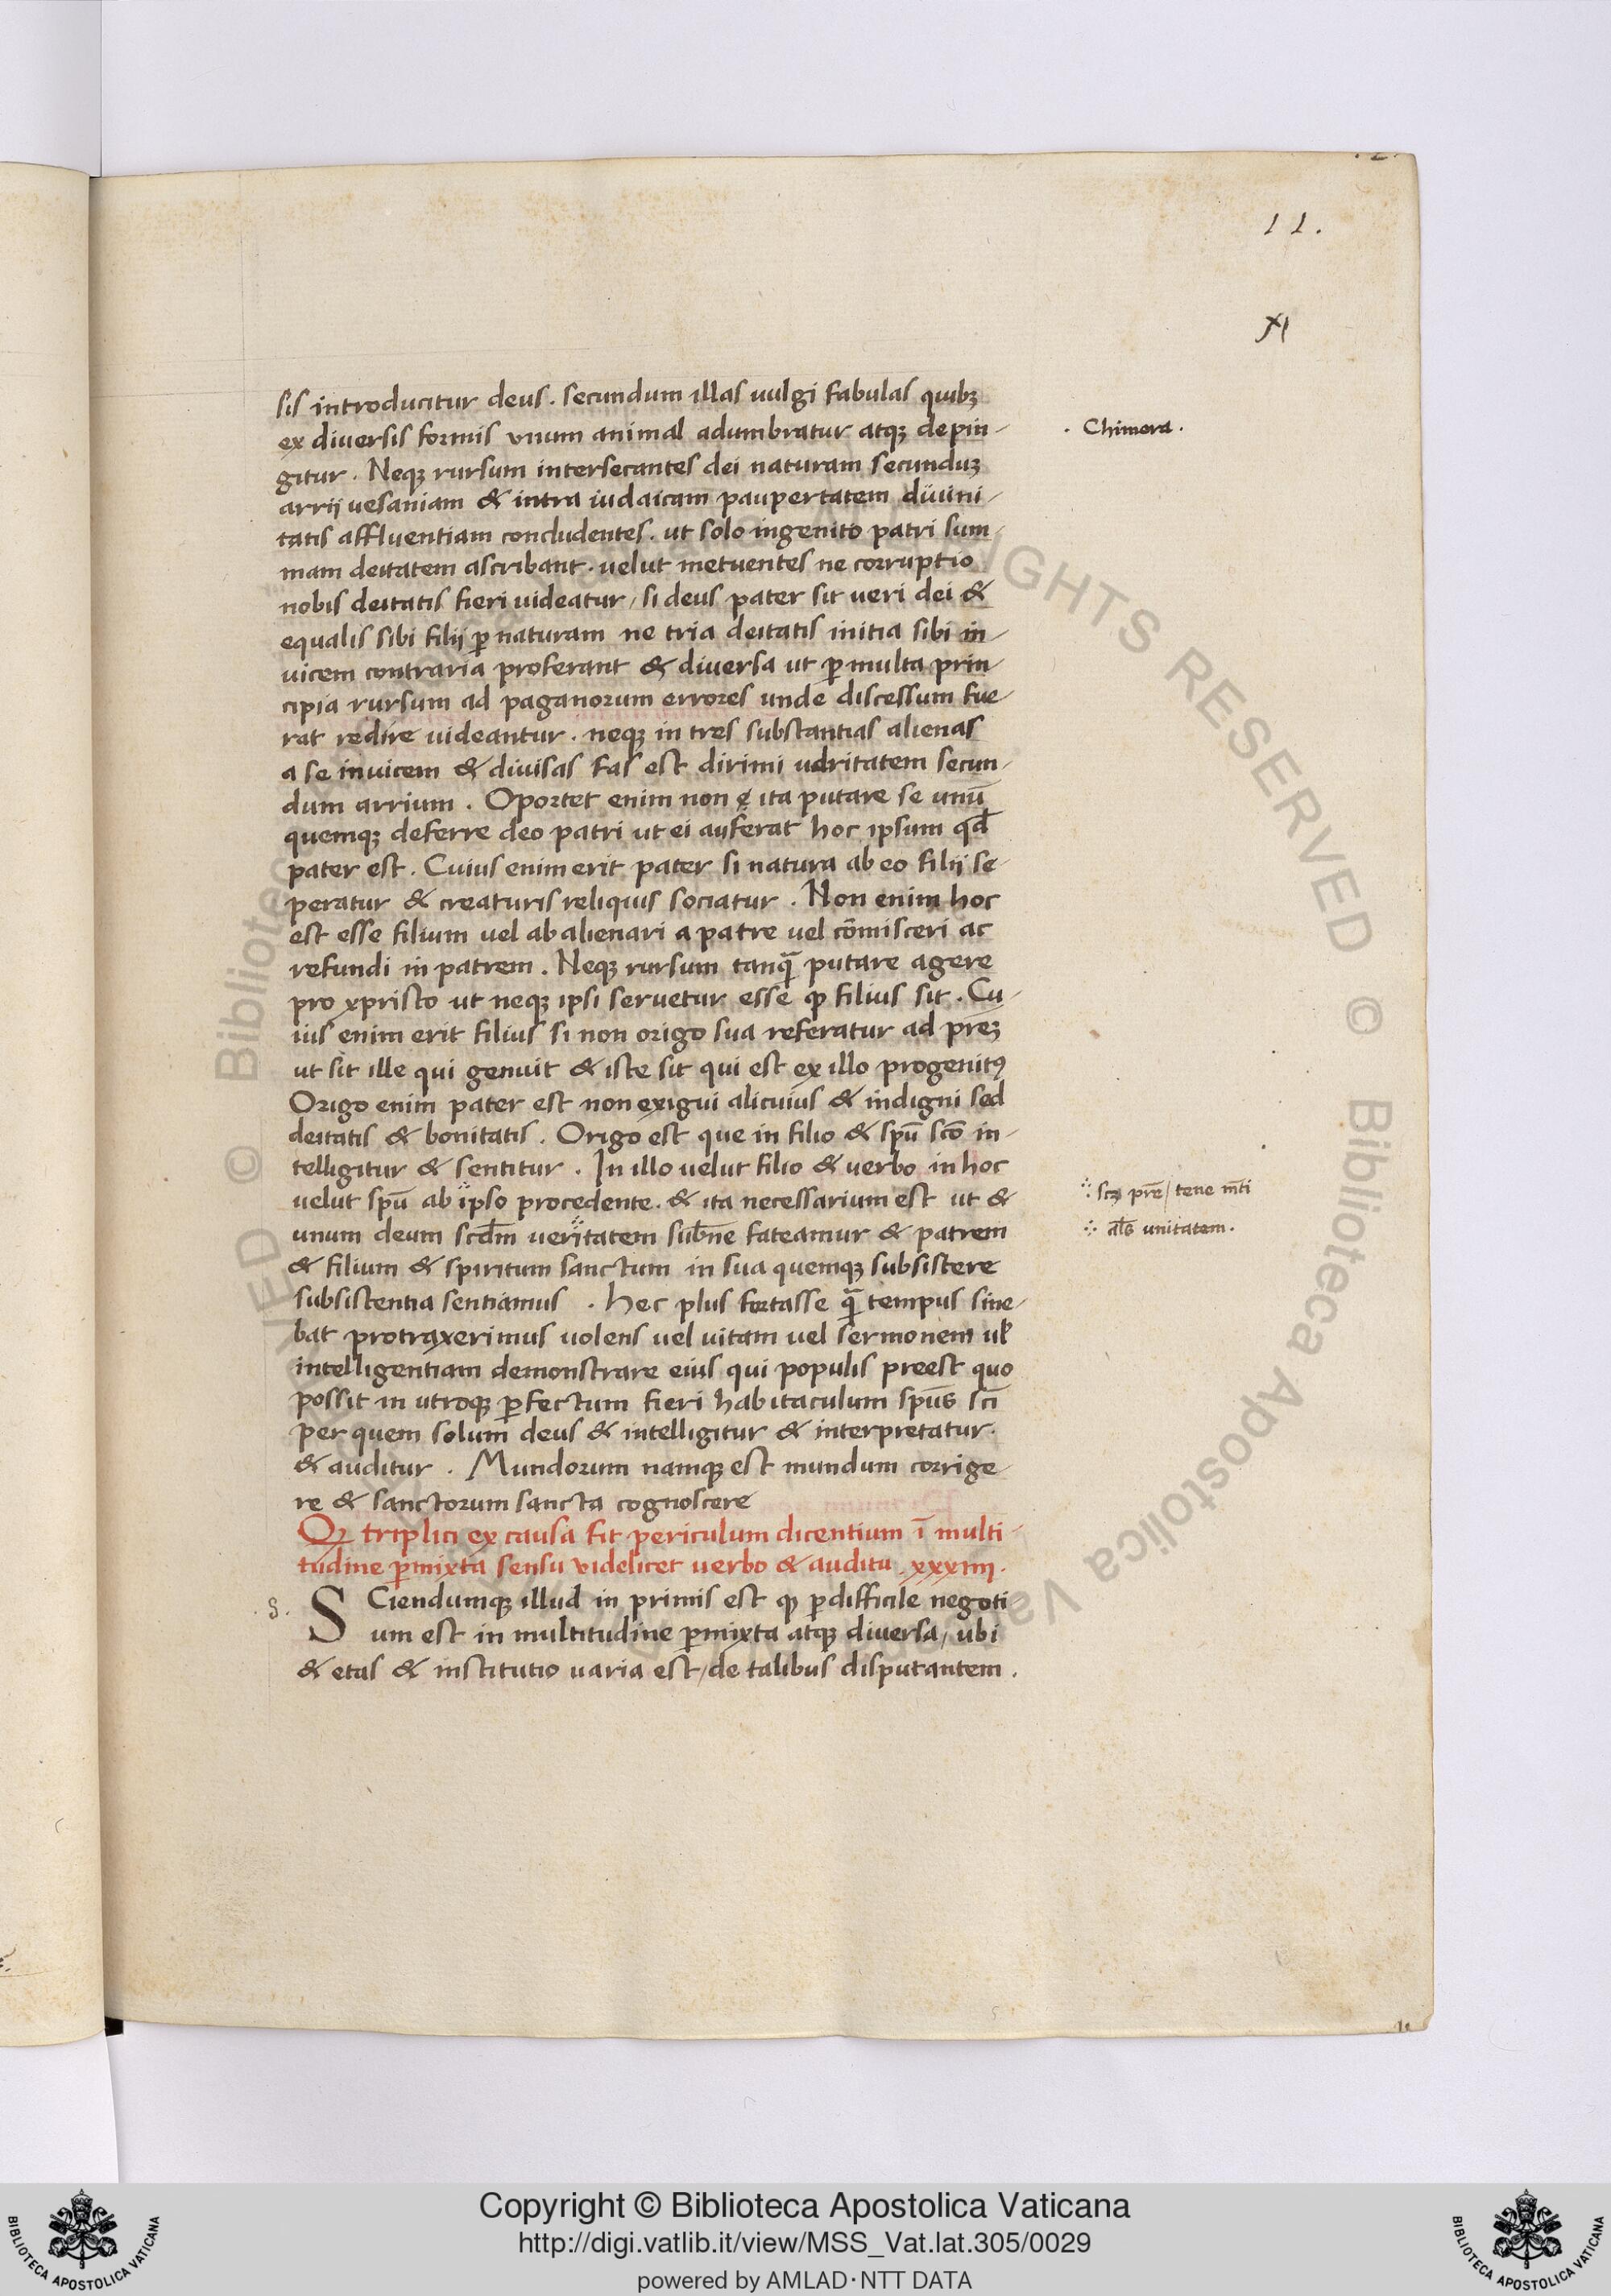 11.
XI
sis introducitur deus. secundum illas uulgi fabulas quibꝫ
ex diuersis formis vnum animal adumbratur atqꝫ depin-
. Chimera.
gitur. Neqꝫ rursum intersecantes dei naturam secunduꝫ
arrij uesaniam & intra iudaicam paupertatem diuini-
tatis affluentiam concludentes. ut solo ingenito patri sum-
mam deitatem ascribant. uelut metuentes ne corruptio
nobis deitatis fieri uideatur, si deus pater sit ueri dei &
equalis sibi filij ꝑ naturam ne tria deitatis initia sibi in-
uicem contraria proferant & diuersa ut ꝑ multa prin-
cipia rursum ad paganorum errores unde discessum fue-
rat redire uideantur. neqꝫ in tres substantias alienas
a se inuicem & diuisas fas est dirimi udritatem secun-
dum arrium. Oportet enim non ita putare se unū
quemqꝫ deferre deo patri ut ei auferat hoc ipsum qd̄
pater est. Cuius enim erit pater si natura ab eo filij se-
peratur & creaturis reliquis sociatur. Non enim hoc
est esse filium uel ab alienari a patre uel cōmisceri ac
refundi in patrem. Neqꝫ rursum tanqᷓ putare agere
pro xpristo ut neqꝫ ipsi seruetur esse ꝙ filius sit. Cu-
ius enim erit filius si non origo sua referatur ad prēꝫ
ut sit ille qui genuit & iste sit qui est ex illo progenitꝰ
Origo enim pater est non exigui alicuius & indigni sed
deitatis & bonitatis. Origo est que in filio & spū scō in-
telligitur & sentitur. In illo uelut filio & uerbo in hoc
uelut spū ab ipso procedente. & ita necessarium est ut &
scꝫ prē / tene m̄ti
unum deum scd̄m ueritatem sub̄ne fateamur & patrem
al̄s unitatem.
& filium & spiritum sanctum in sua quemqꝫ subsistere
subsistentia sentiamus. Hec plus fortasse qᷓ tempus sine-
bat protraxerimus uolens uel uitam uel sermonem ul̄
intelligentiam demonstrare eius qui populis preest quo
possit in utroqꝫ ꝑfectum fieri habitaculum spūs scī
per quem solum deus & intelligitur & interpretatur.
& auditur. Mundorum namqꝫ est mundum corrige-
re & sanctorum sancta cognoscere
Qꝫ triplici ex causa fit periculum dicentium ī multi-
tudine ꝑmixta sensu videlicet uerbo & auditu. xxxiiii.
.s. SCiendumqꝫ illud in primis est ꝙ ꝑdifficile negoti
um est in multitudine ꝑmixta atqꝫ diuersa, ubi
& etas & institutio uaria est, de talibus disputantem.
© Biblioteca Apostolica Vaticana
ALL RIGHTS RESERVED
Copyright © Biblioteca Apostolica Vaticana
http://digi.vatlib.it/view/MSS_Vat.lat.305/0029
powered by AMLAD·NTT DATA
BIBLIOTECA APOSTOLICA VATICANA
BIBLIOTECA APOSTOLICA VATICANA